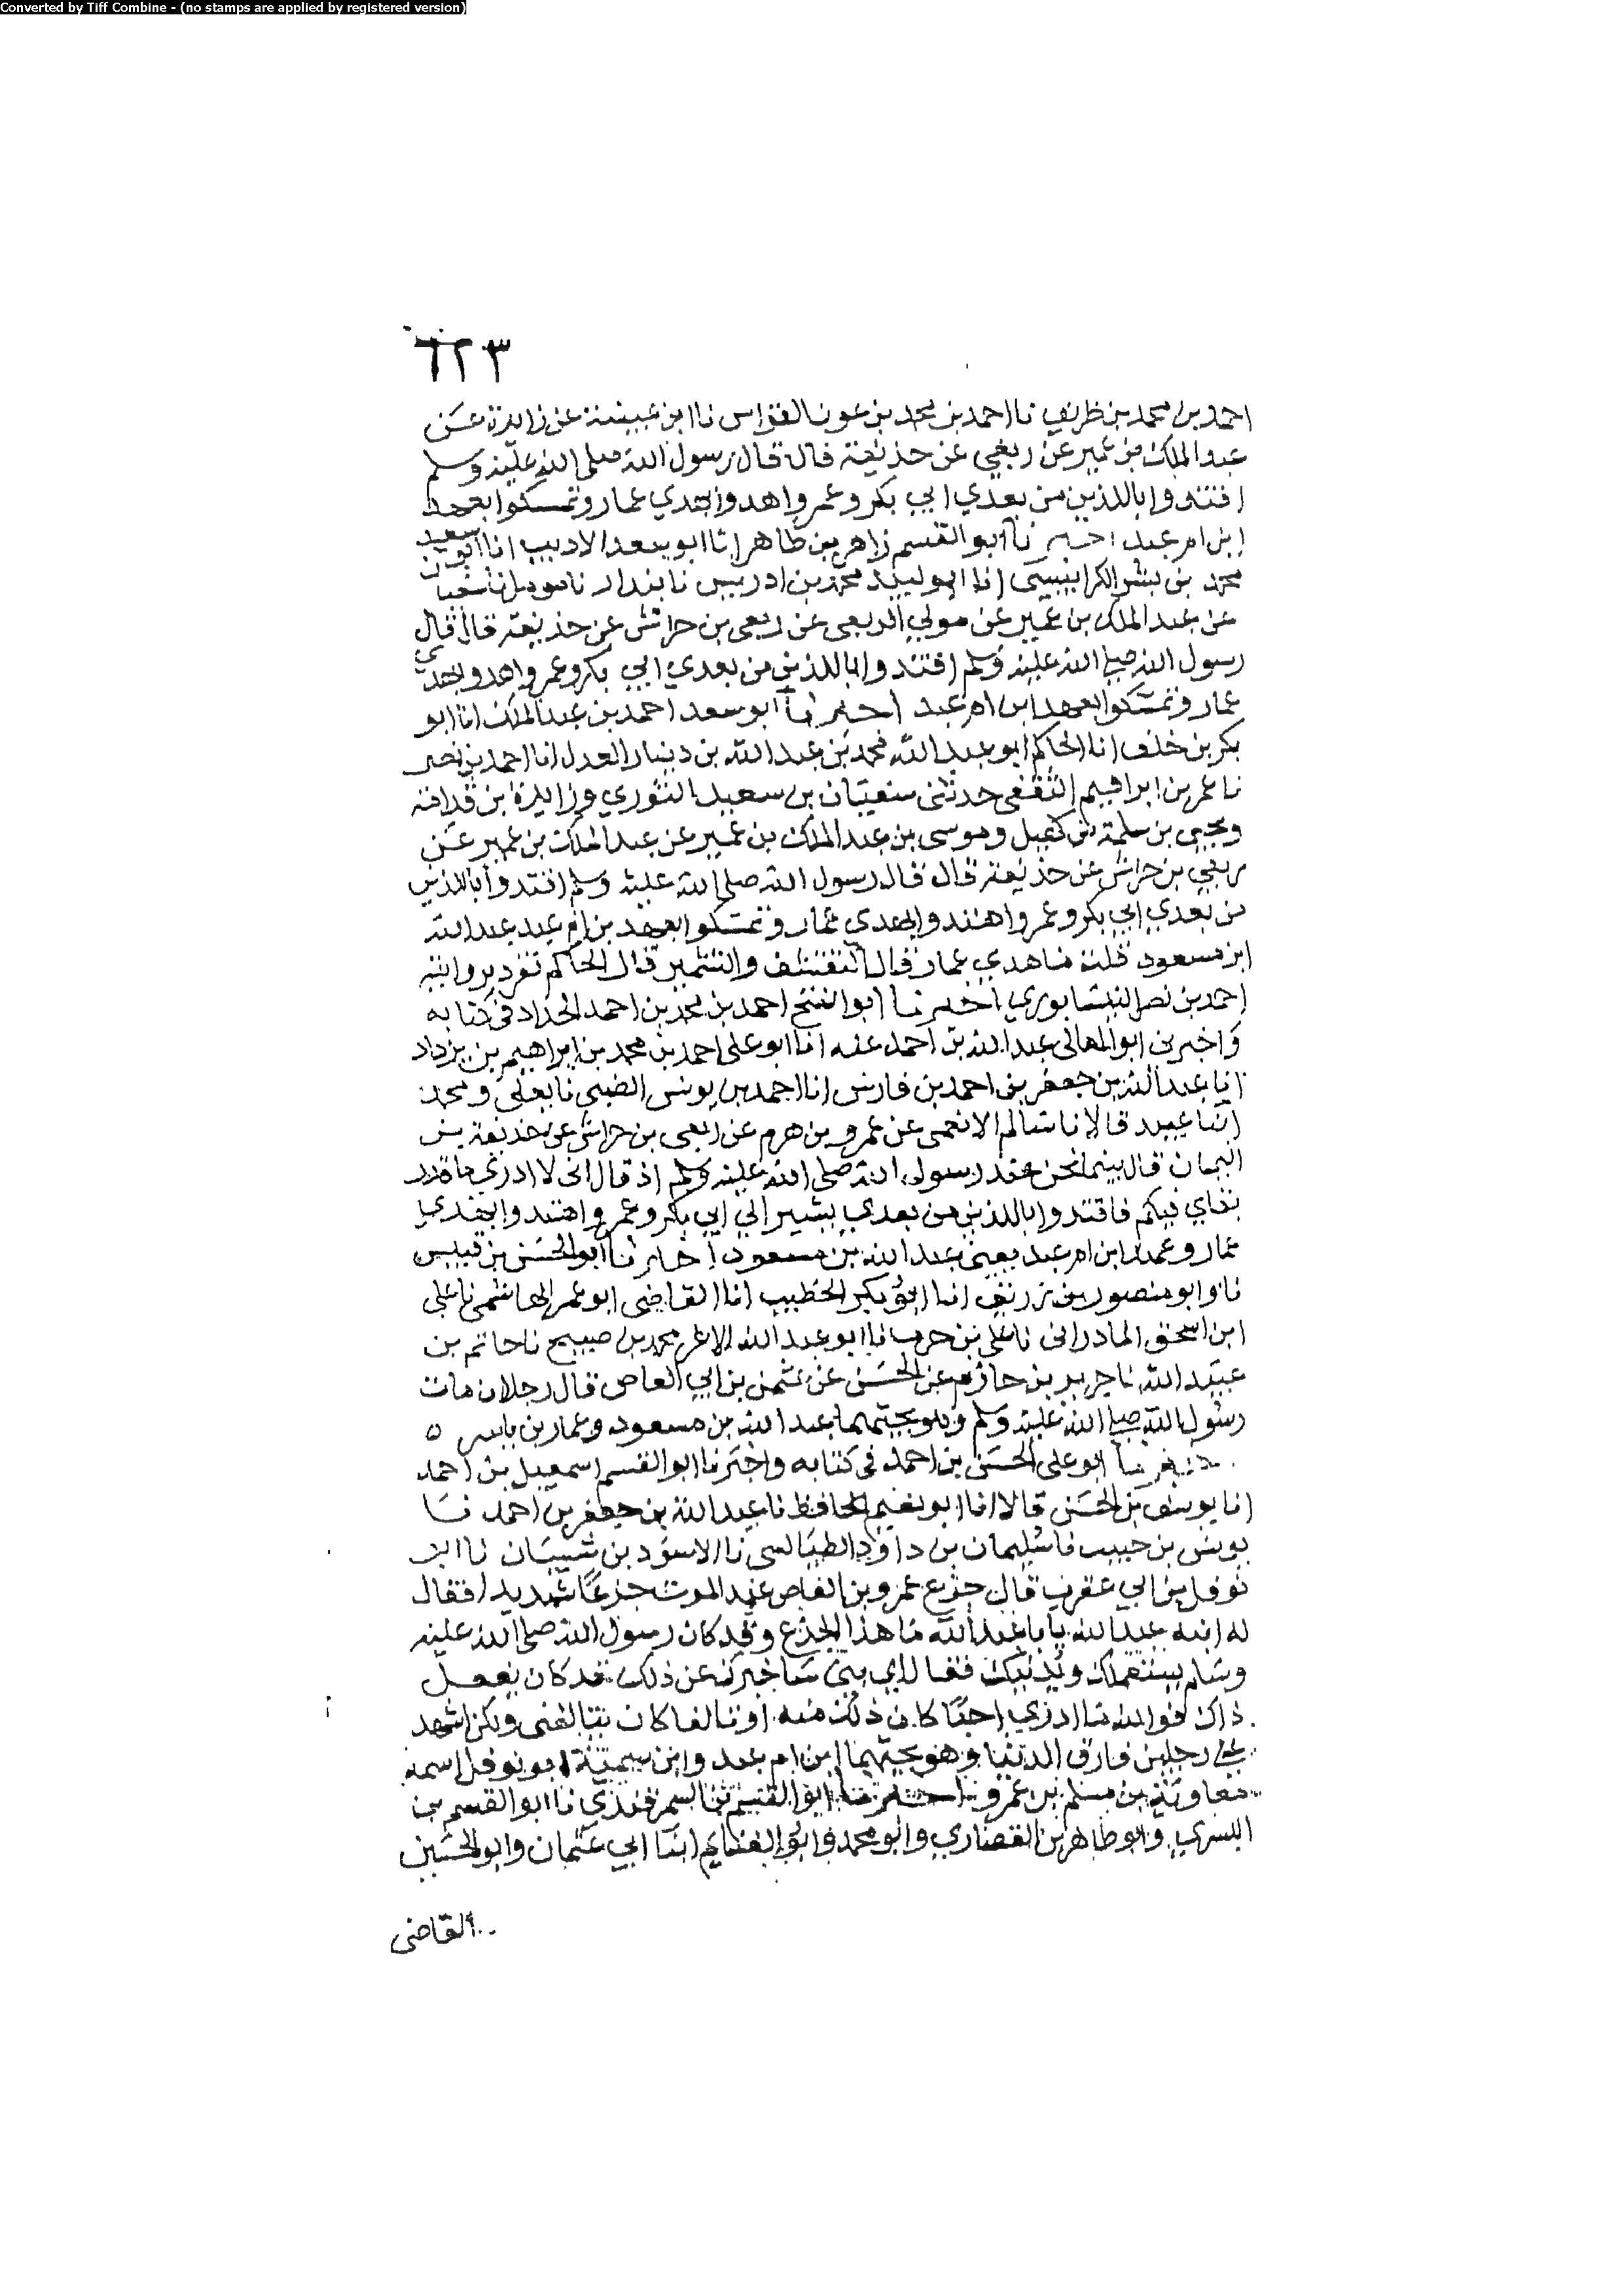 Converted by Tiff Combine - (no stamps are applied by registered version)
٦٢٣
احمد بن محمد بن ظريف نا احمد بن محمد بن عون القواس نا ابن عيينة عن زايدة عن
عبد الملك بن عمير عن ربعي عن حذيفة قال قال رسول الله صلى الله عليه وسلم
اقتدوا باللذين من بعدي ابي بكر وعمر واهدوا بهدي عمار وتمسكوا بعهد
ابن ام عبد اخبرنا ابو القسم زاهر بن طاهر انا ابو سعد الاديب انا ابو سعيد
محمد بن بشر الكرابيسي انا ابو لبيد محمد بن ادريس نا بندار نا مومل نا سفيان
عن عبد الملك بن عمير عن مولي الربعي عن ربعي بن حراش عن حذيفة قال قال
رسول الله صلى الله عليه وسلم اقتدوا باللذين من بعدي ابي بكر وعمر واهدوا بهدي
عمار وتمسكوا بعهد ابن ام عبد اخبرنا ابو سعد احمد بن عبد الملك انا ابو
بكر بن خلف انا الحاكم ابو عبد الله محمد بن عبد الله بن دينار العدل انا احمد بن نصر
نا عمر بن ابراهيم الثقفي حدثني سفيان بن سعيد الثوري وزايدة بن قدامة
ويحيى بن سلمة بن كهيل وموسى بن عبد الملك بن عمير عن عبد الملك بن عمير عن
ربعي بن حراش عن حذيفة قال قال رسول الله صلى الله عليه وسلم اقتدوا باللذين
من بعدي ابي بكر وعمر واهتدوا بهدي عمار وتمسكوا بعهد بن ام عبد عبد الله
ابن مسعود قلت ما هدي عمار قال التقشف والتشمير قال الحاكم تفرد بروايته
احمد بن نصر النيسابوري اخبرنا ابو الفتح احمد بن محمد بن احمد الحداد في كتابه
واخبرني ابو المعالي عبد الله بن احمد عنه انا ابو علي احمد بن محمد بن ابراهيم بن يزداد
انا عبد الله بن جعفر بن احمد بن فارس انا احمد بن يونس الضبي نا يعلى ومحمد
ابنا عبيد قالا نا سالم الانعمي عن عمرو بن هرم عن ربعي بن حراش عن حذيفة بن
اليمان قال بينما نحن عند رسول الله صلى الله عليه وسلم اذ قال اني لا ادري ما قدر
بقاي فيكم فاقتدوا باللذين من بعدي يشير الي ابي بكر وعمر واهتدوا بهدي
عمار وعهد ابن ام عبد يعني عبد الله بن مسعود اخبرنا ابو الحسن بن قبيس
نا وابو منصور بن زريق انا ابو بكر الخطيب انا القاضي ابو عمر الهاشمي نا علي
ابن اسحق المادراني نا علي بن حرب نا ابو عبد الله الاغر محمد بن صبيح نا حاتم بن
عبيد الله نا جرير بن حازم عن الحسن عن عثمن بن ابي العاص قال رجلان مات
رسول الله صلى الله عليه وسلم وهو يحبهما عبد الله بن مسعود وعمار بن ياسر ه
اخبرنا ابو علي الحسن بن احمد في كتابه واخبرنا ابو القسم اسمعيل بن احمد
انا يوسف بن الحسن قالا انا ابو نعيم الحافظ نا عبد الله بن جعفر بن احمد نا
يونس بن حبيب نا سليمان بن داود الطيالسي نا الاسود بن شيبان نا ابو
نوفل بن ابي عقرب قال جزع عمرو بن العاص عند الموت جزعا شديدا فقال
له ابنه عبد الله يا با عبد الله ما هذا الجزع وقد كان رسول الله صلى الله عليه
وسلم يستعملك ويدنيك فقال اي بني ساخبرك عن ذلك قد كان يفعل
ذاك فوالله ما ادري احبا كان ذلك منه او تالفا كان يتالفني ولكن اشهد
على رجلين فارق الدنيا وهو يحبهما ابن ام عبد وابن سمية ابو نوفل اسمه
معاوية بن مسلم بن عمرو اخبرنا ابو القسم بن السمرقندي نا ابو القسم بن
البسري وابو طاهر بن القصاري وابو محمد وابو الغنايم ابنا ابي عثمان وابو الحسين
القاضي